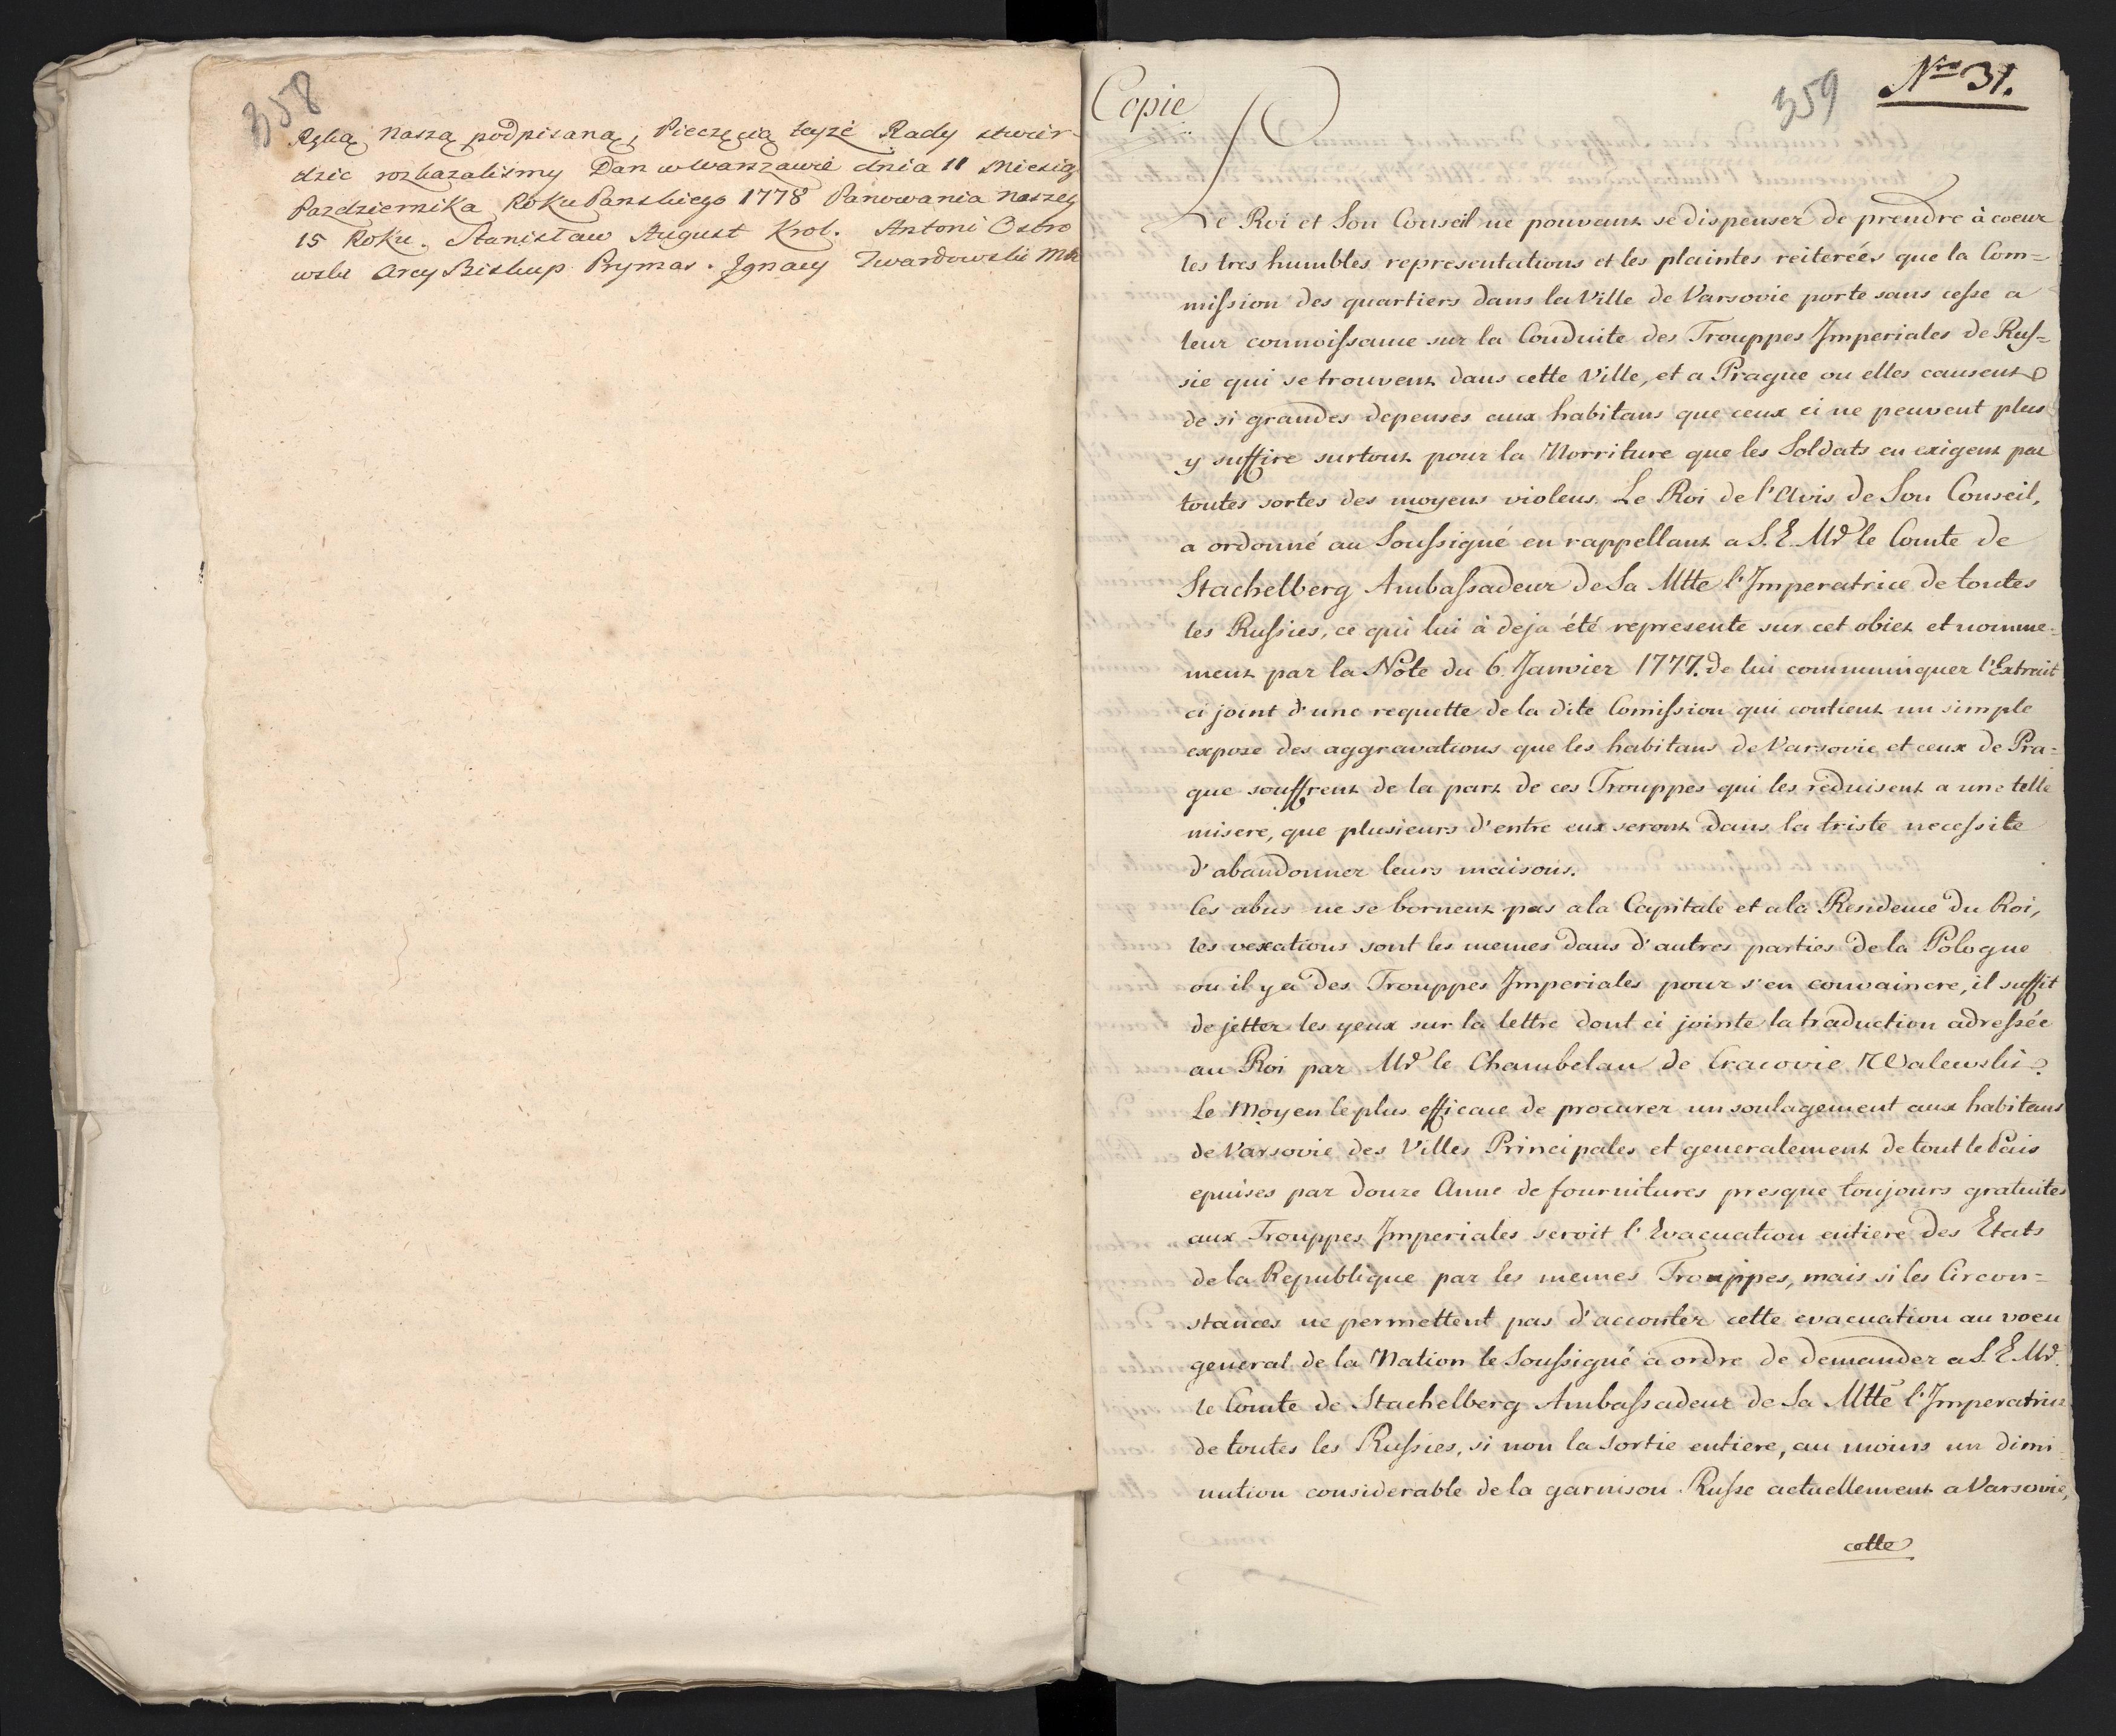 358
Ręką Naszą podpisaną, Pieczęcią teyże Rady stwier-
dzic rozkazalismy Dan w Warszawie dnia 11 Miesiąc
Pazdziernika Roku Panskiego 1778 Panowania Naszeg
15 Roku. Stanisław August Krol. Antoni Ostro
wski Arcy Biskup Prymas. Jgnacy Twardowski
359
Nro 31.
Copie
Le Roi et Son Conseil ne pouvent se dispenser de prendre à coeur
les tres humbles representations et les plaintes reiterées que la Com=
mission des quartiers dans la Ville de Varsovie porte sans cesse a
leur connoissance sur la Conduite des Trouppes Jmperiales de Rus=
sie qui se trouvent dans cette Ville, et a Prague ou elles causent
de si grandes depenses aux habitans que ceux ci ne peuvent plus
y suffire surtout pour la Norriture que les Soldats en exigent par
toutes sortes des moyens violens. Le Roi de l'Avis de Son Conseil,
a ordonné au Soussigné en rappellant a S. E. Mr le Comte de
Stachelberg Ambassadeur de Sa Mtte l'Jmperatrice de toutes
les Russies, ce qui lui à deja été represente sur cet obiet et nomme=
ment par la Note du 6. Janvier 1777. de lui communiquer l'Extrait
ci joint d'une requette de la dite Comission qui contient un simple
expose des aggravations que les habitans de Varsovie et ceux de Pra=
gue souffrent de la part de ces Trouppes qui les reduisent a une telle
misere, que plusieurs d'entre eux seront dans la triste necessite
d'abandonner leurs maisons.
Ces abus ne se bornent pas a la Capitale et a la Residence du Roi,
les vexations sont les memes dans d'autres parties de la Pologne
ou il y a des Trouppes Jmperiales pour s'en convaincre, il suffit
de jetter les yeux sur la lettre dont ci jointe la traduction adressée
au Roi par Mr le Chambelan de Cracovie Walewski.
Le Moyen le plus efficace de procurer un soulagement aux habitans
de Varsovie des Villes Principales et generalement de tout le Pais
epuises par douze Anne de fournitures presque toujours gratuites
aux Trouppes Jmperiales seroit l'Evacuation entiere des Etats
de la Republique par les memes Trouppes, mais si les Circon=
stances ne permettent pas d'accorder cette evacuation au voeu
general de la Nation le Soussigné à ordre de demander a S. E. Mr.
le Comte de Stachelberg Ambassadeur de Sa Mtte l'Jmperatrice
de toutes les Russies, si non la Sortie entiere, au moins un dimi
nution considerable de la garnison Russe actuellement a Varsovie,
cette